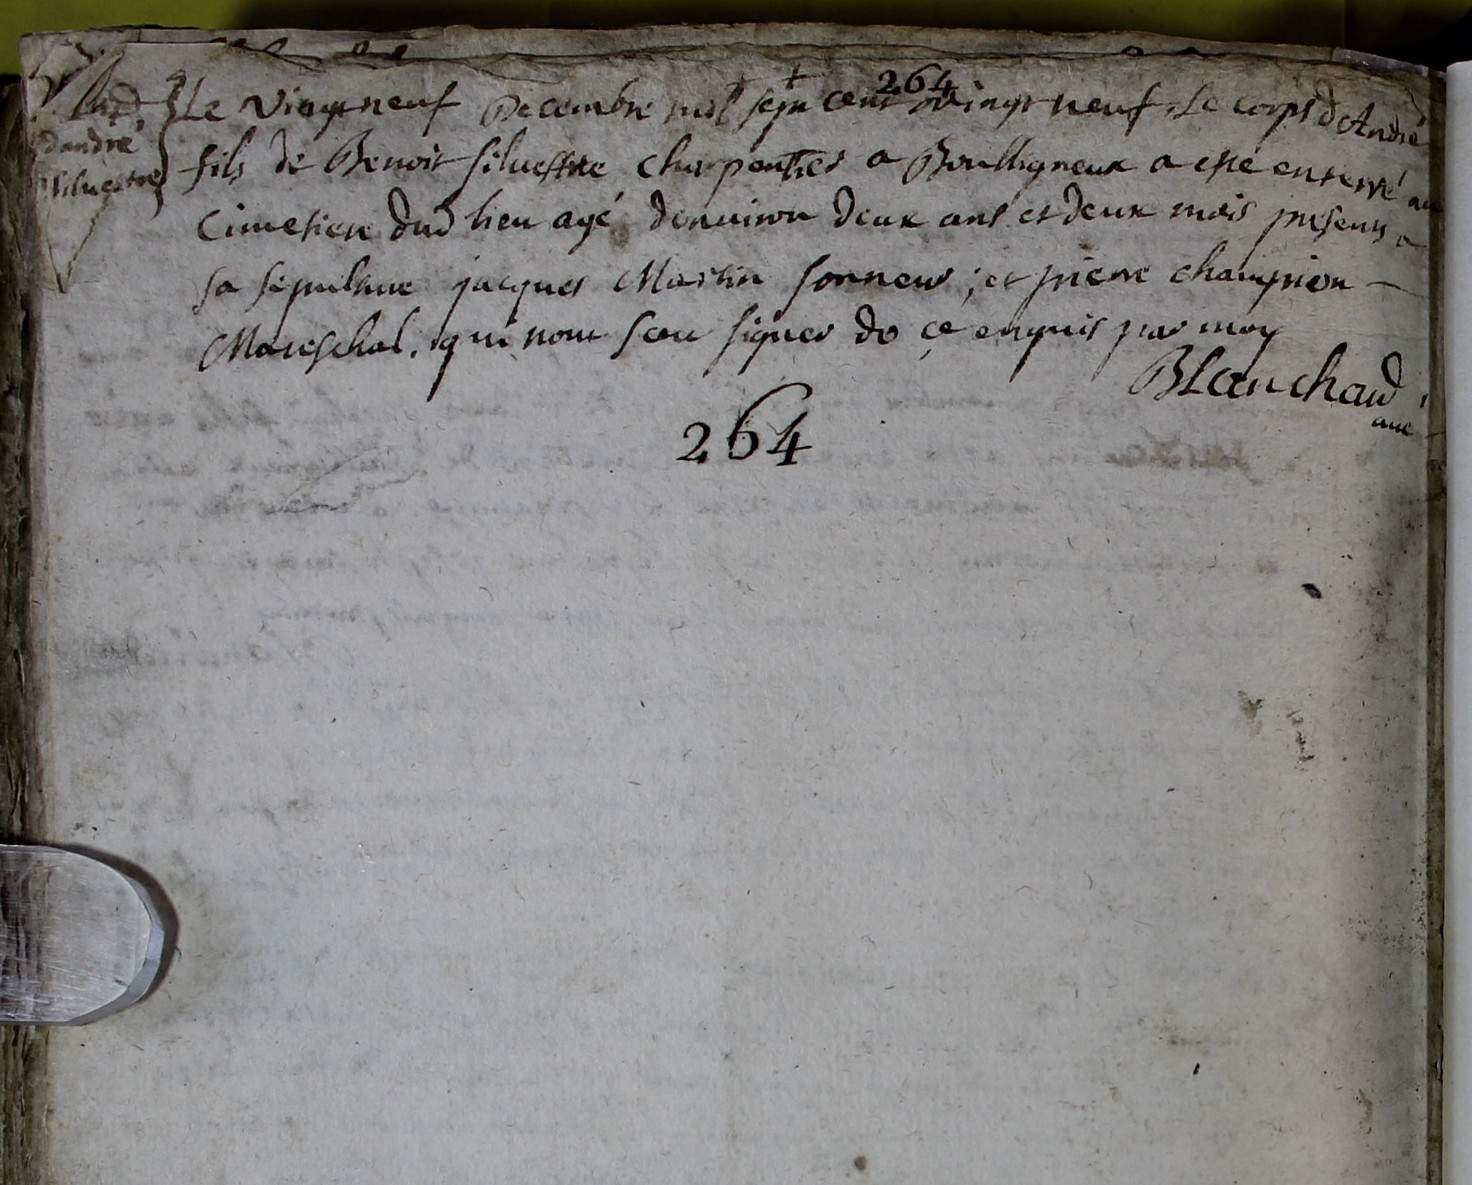 264
Le vingt neuf Decembre mil sept cent vingt neuf Le corps d'André
dandré
silvestre
fils de Benoit silvestre charpentier a Boulligneux a esté enterré au
Cimetiere dud lieu agé denviron deux ans et deux mois presents a
sa sepulture jacques Martin sonneur ; et pierre champion
Mareschal . qui nont sceu signer de ce enquis par moy
Blanchard
264